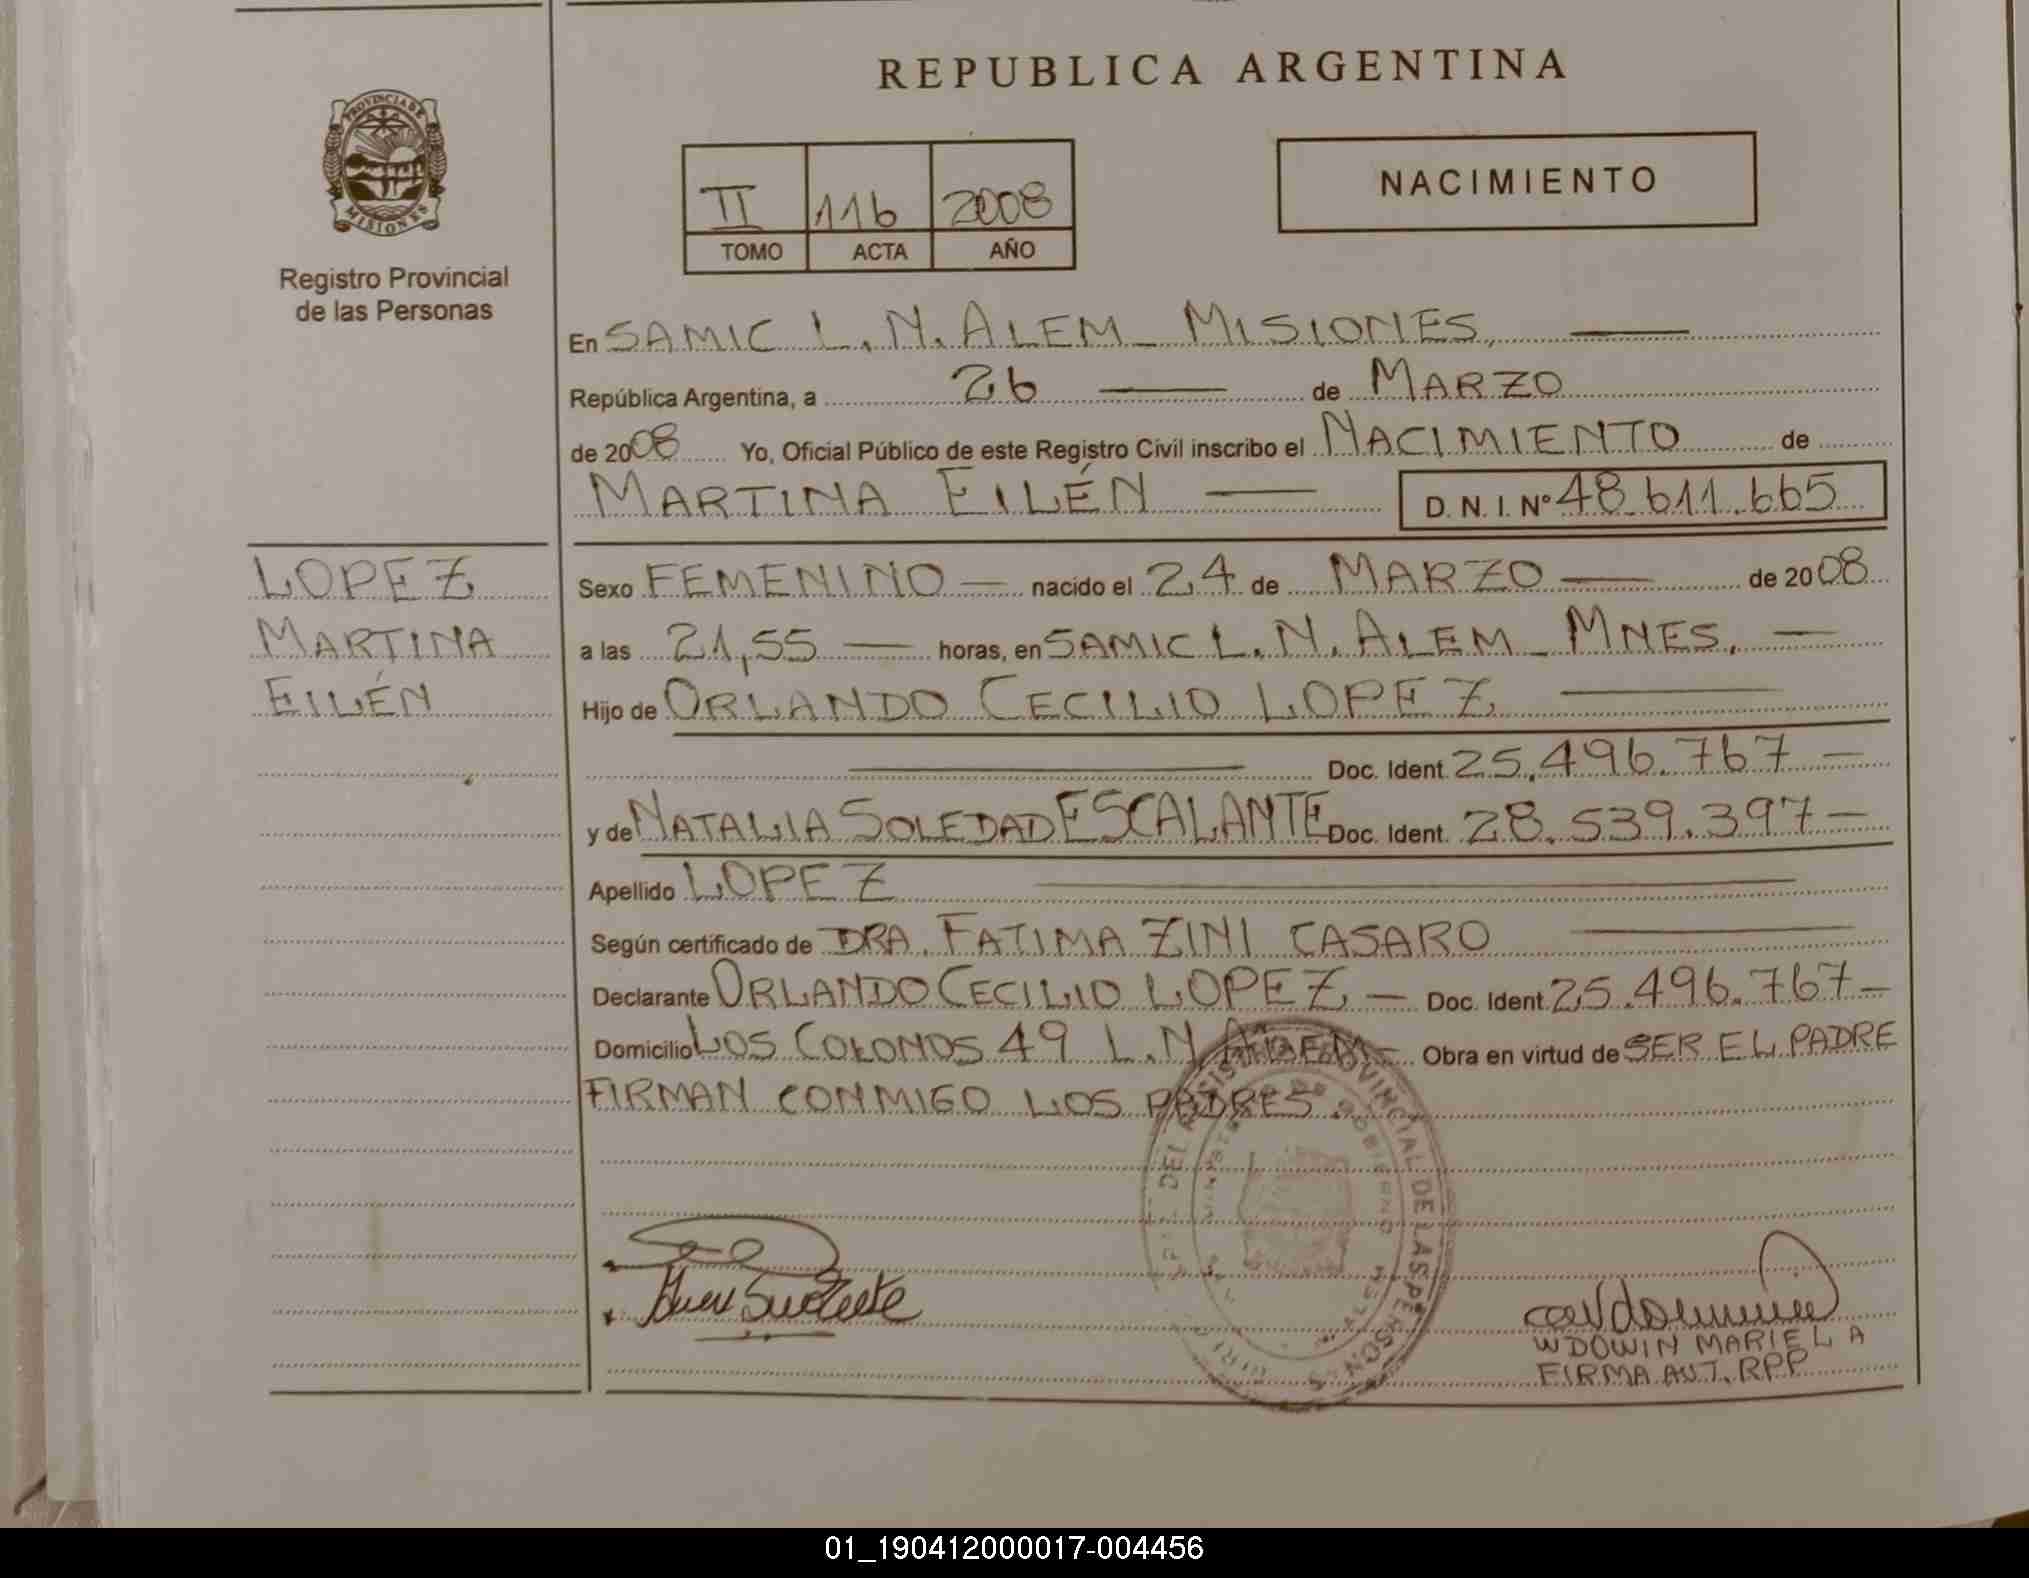 REPUBLICA ARGENTINA
PROVINCIA DE
MISIONES
Registro Provincial
de las Personas
II 116 2008
TOMO ACTA AÑO
NACIMIENTO
En SAMIC L. N. ALEM - MISIONES,
República Argentina, a 26 de MARZO
de 2008 Yo, Oficial Público de este Registro Civil inscribo el NACIMIENTO de
MARTINA EILÉN D. N. I. Nº 48.611.665
LOPEZ
MARTINA
EILÉN
Sexo FEMENINO - nacido el 24 de MARZO de 2008
a las 21,55 horas, en SAMIC L. N. ALEM - MNES.
Hijo de ORLANDO CECILIO LOPEZ
Doc. Ident. 25.496.767 -
y de NATALIA SOLEDAD ESCALANTE Doc. Ident. 28.539.397 -
Apellido LOPEZ
Según certificado de DRA. FATIMA ZINI CASARO
Declarante ORLANDO CECILIO LOPEZ - Doc. Ident. 25.496.767 -
Domicilio LOS COLONOS 49 L.N. ALEM - Obra en virtud de SER EL PADRE
FIRMAN CONMIGO LOS PADRES.
WDOWIN MARIELA
FIRMA AUT. RPP
01_190412000017-004456